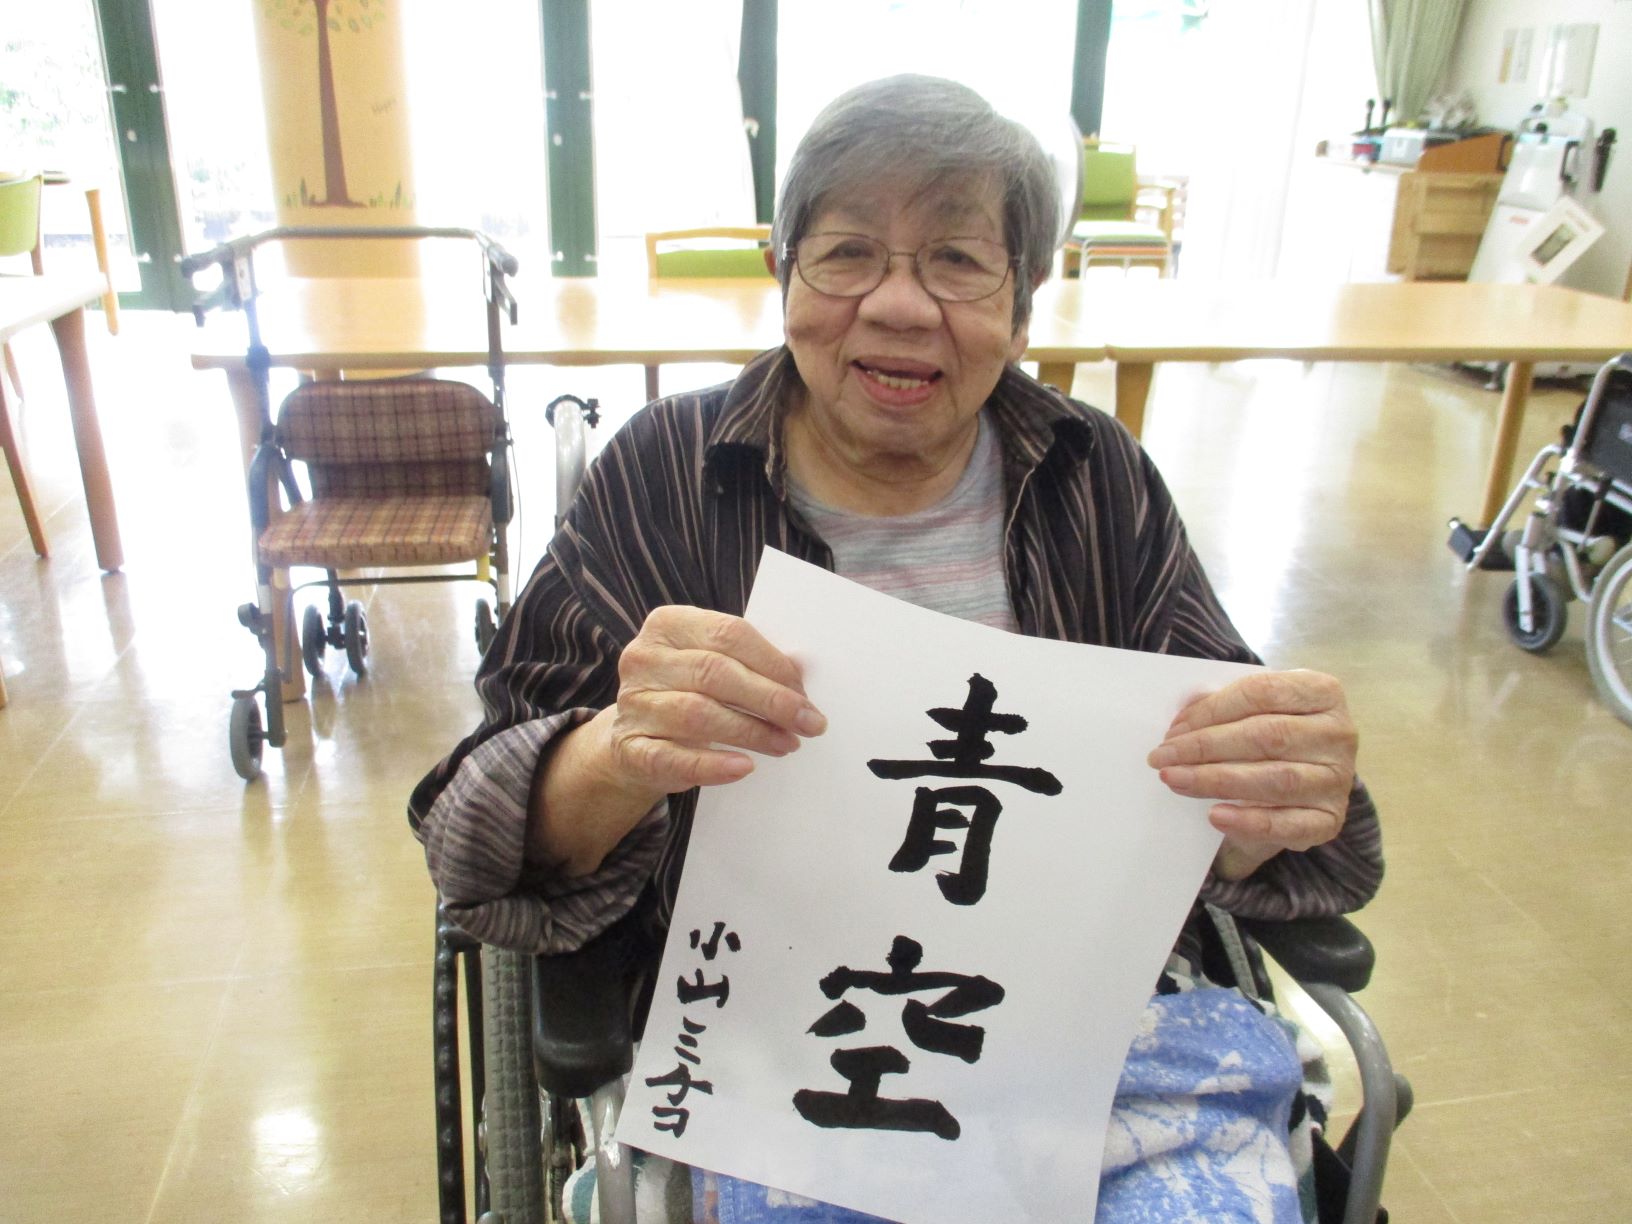 青空
小山ミチヨ